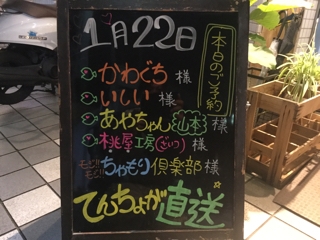 1月22日
本日のご予約
かわぐち 様
いしい 様
あやちゃん 山本 様
桃屋工房 様
ちゃもり倶楽部 様
てんちょが直送